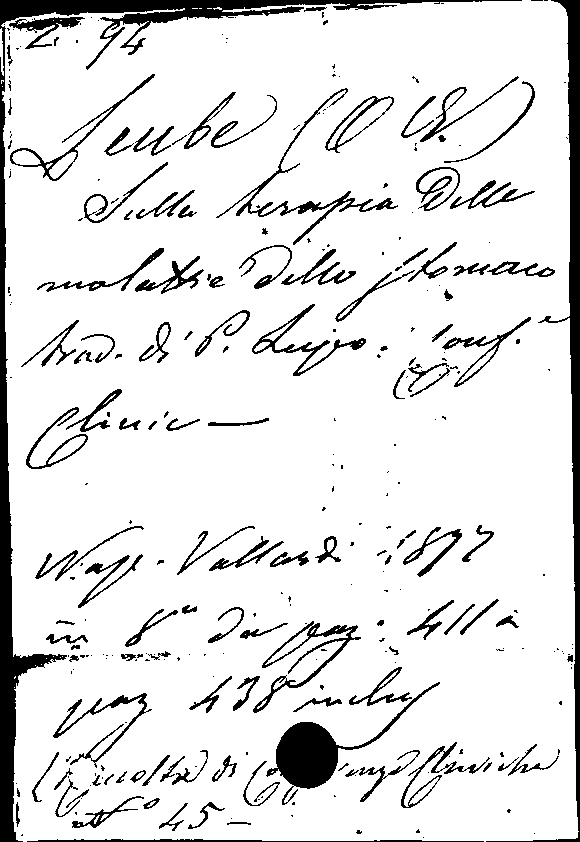 2. 94
Leube (O E.)
Sulla terapia delle
malattie dello stomaco
trad. di P. Lupo. Conf.e
Clinic—
Nap. Vallardi 1877
in 8° da pag. 411 a
pag 438 inclus
(Raccolta di Cliniche
N° 45—